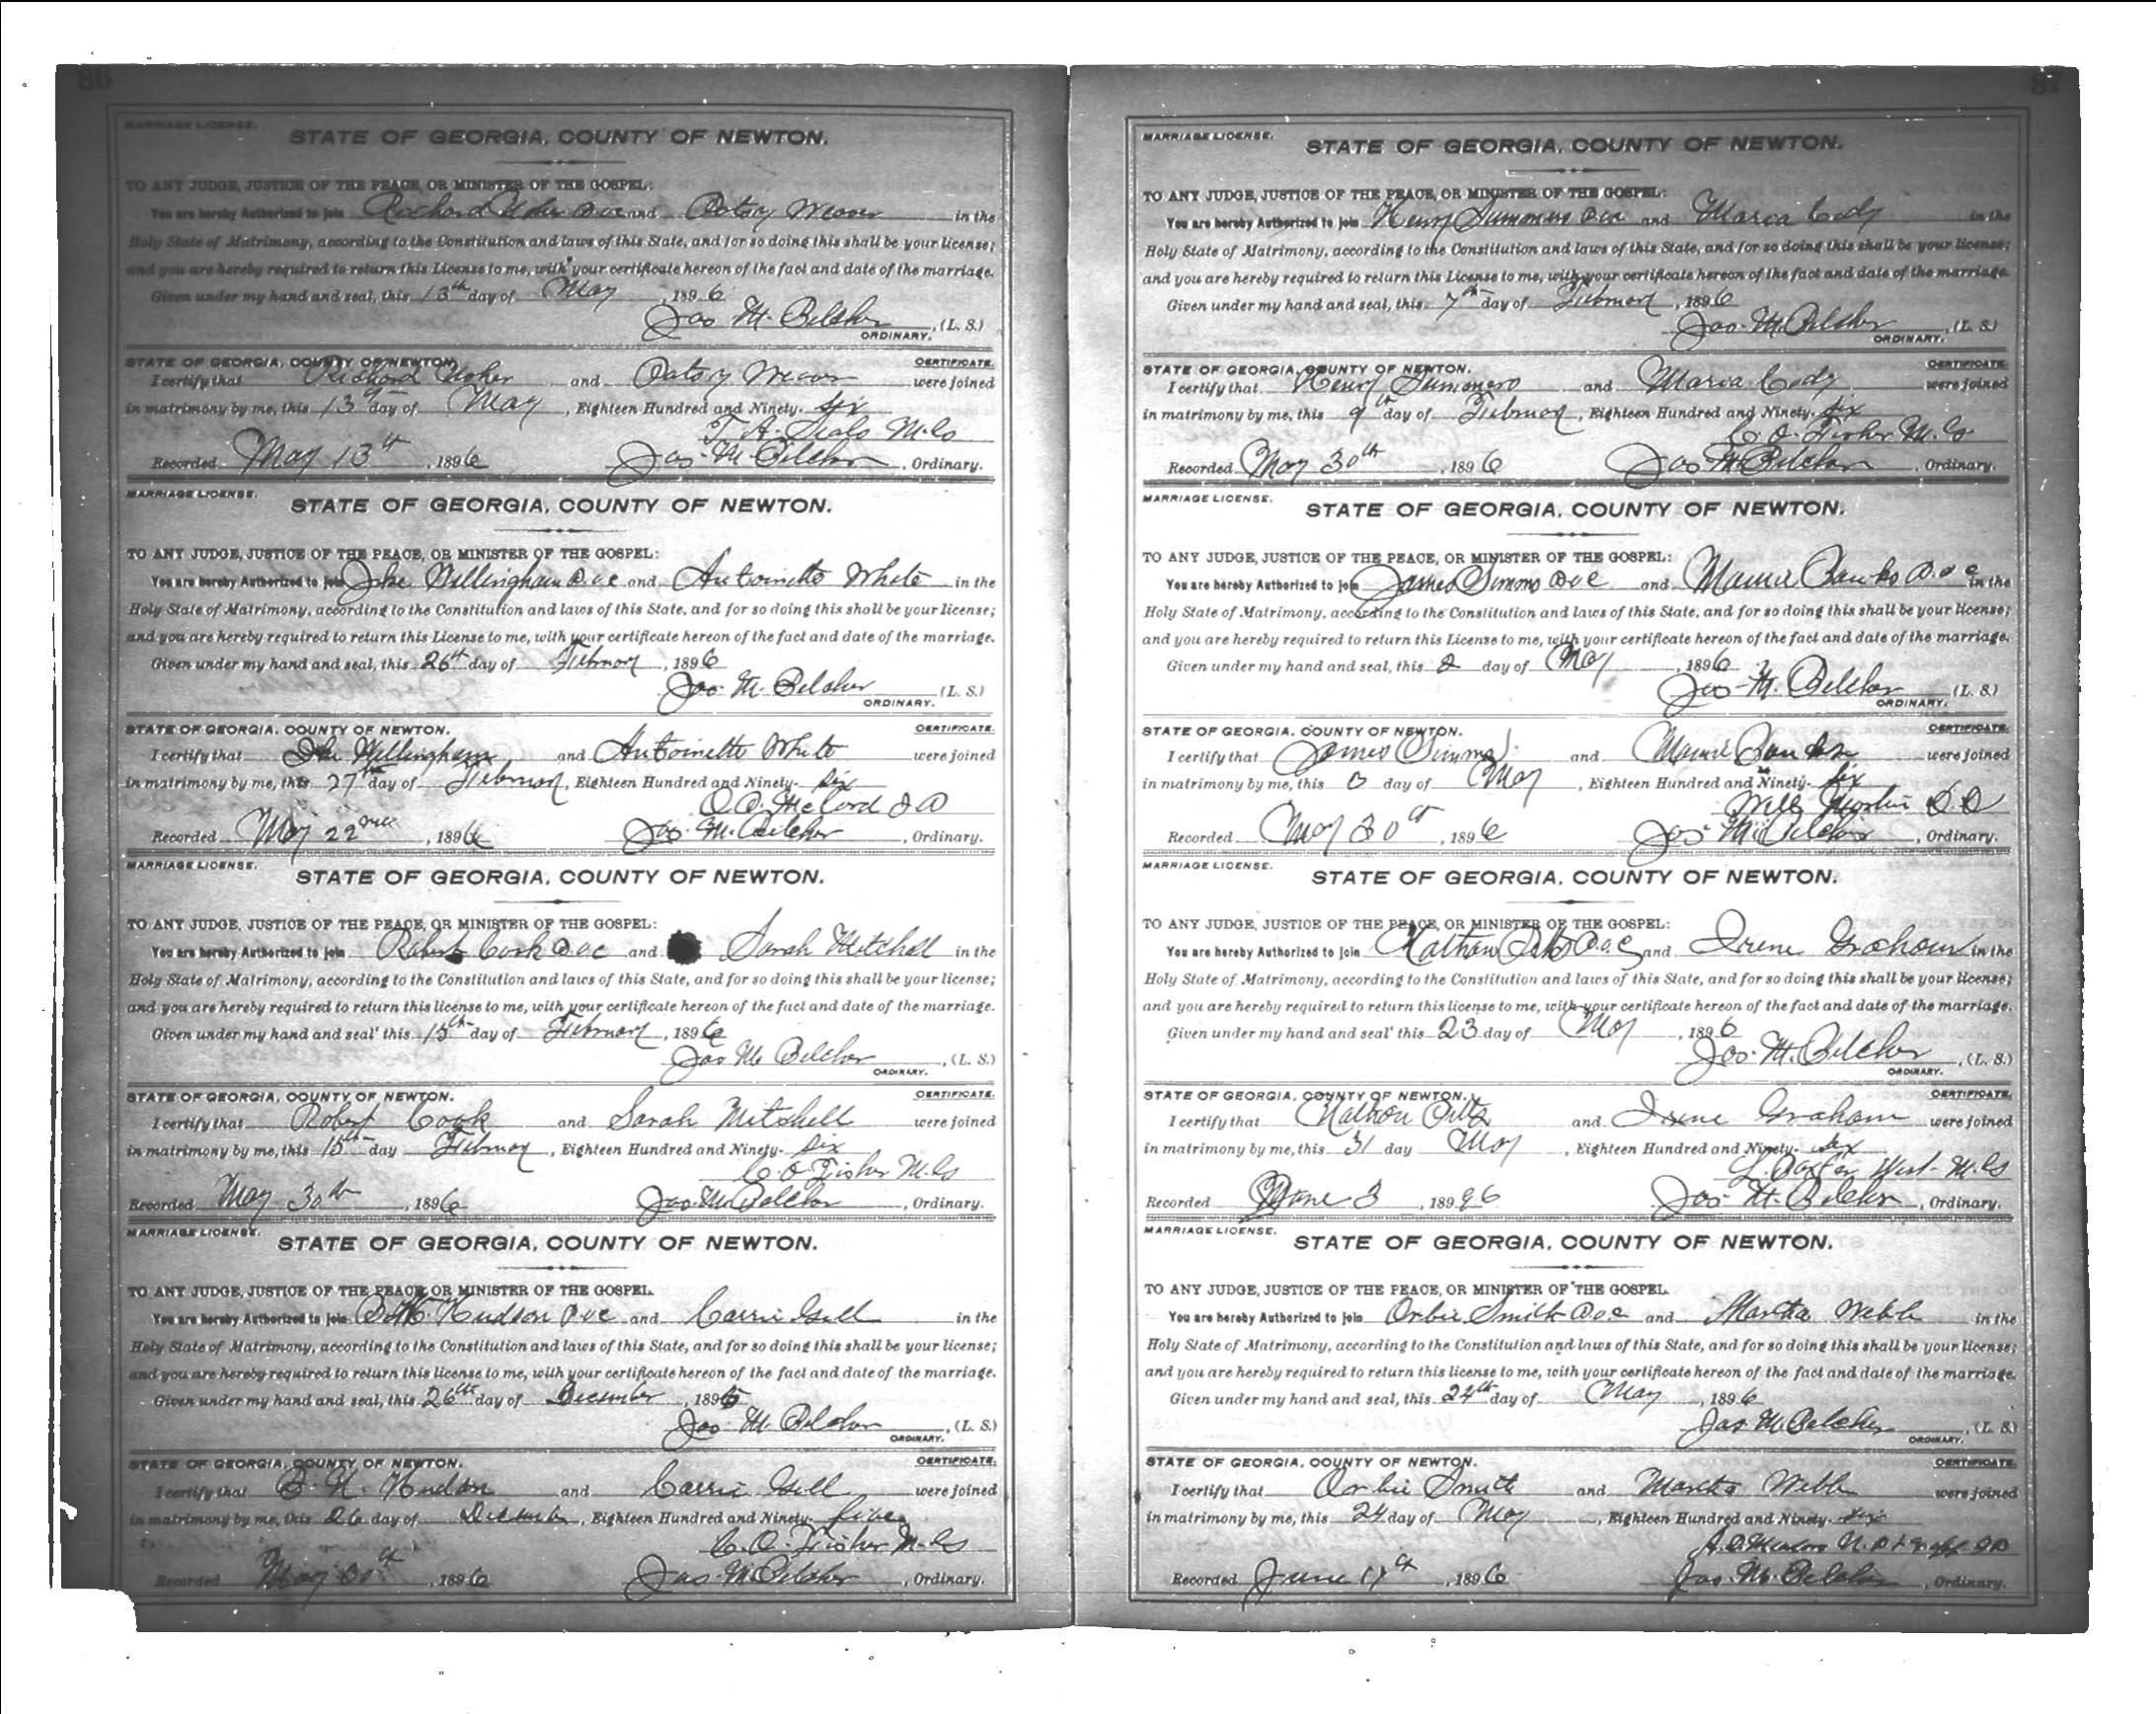 86
MARRIAGE LICENSE.
STATE OF GEORGIA, COUNTY OF NEWTON.
TO ANY JUDGE, JUSTICE OF THE PEACE, OR MINISTER OF THE GOSPEL:
You are hereby Authorized to join Richard Usher and Patsy Weaver in the
Holy State of Matrimony, according to the Constitution and laws of this State, and for so doing this shall be your license;
and you are hereby required to return this License to me, with your certificate hereon of the fact and date of the marriage.
Given under my hand and seal, this 13th day of May, 1896
Jas M. Belcher, (L. S.)
ORDINARY.
STATE OF GEORGIA, COUNTY OF NEWTON. CERTIFICATE.
I certify that Richard Usher and Patsy Weaver were joined
in matrimony by me, this 13th day of May, Eighteen Hundred and Ninety-six
T. A. Seals M.G
Recorded May 13th, 1896 Jas. M. Belcher, Ordinary.
MARRIAGE LICENSE.
STATE OF GEORGIA, COUNTY OF NEWTON.
TO ANY JUDGE, JUSTICE OF THE PEACE, OR MINISTER OF THE GOSPEL:
You are hereby Authorized to join Willingham and Antoinette White in the
Holy State of Matrimony, according to the Constitution and laws of this State, and for so doing this shall be your license;
and you are hereby required to return this License to me, with your certificate hereon of the fact and date of the marriage.
Given under my hand and seal, this 26th day of February, 1896
Jas. M. Belcher (L. S.)
ORDINARY.
STATE OF GEORGIA, COUNTY OF NEWTON. CERTIFICATE.
I certify that Willingham and Antoinette White were joined
in matrimony by me, this 27th day of February, Eighteen Hundred and Ninety-six
McCord
Recorded May 22nd, 1896 Jas. M. Belcher, Ordinary.
MARRIAGE LICENSE.
STATE OF GEORGIA, COUNTY OF NEWTON.
TO ANY JUDGE, JUSTICE OF THE PEACE, OR MINISTER OF THE GOSPEL:
You are hereby Authorized to join Robert Cook and Sarah Mitchell in the
Holy State of Matrimony, according to the Constitution and laws of this State, and for so doing this shall be your license;
and you are hereby required to return this license to me, with your certificate hereon of the fact and date of the marriage.
Given under my hand and seal' this 15th day of February, 1896
Jas M. Belcher, (L. S.)
ORDINARY.
STATE OF GEORGIA, COUNTY OF NEWTON. CERTIFICATE.
I certify that Robert Cook and Sarah Mitchell were joined
in matrimony by me, this 15th day February, Eighteen Hundred and Ninety-six
C. O. Fisher M.G
Recorded May 30th, 1896 Jas. M. Belcher, Ordinary.
MARRIAGE LICENSE.
STATE OF GEORGIA, COUNTY OF NEWTON.
TO ANY JUDGE, JUSTICE OF THE PEACE, OR MINISTER OF THE GOSPEL.
You are hereby Authorized to join Hudson and Carrie Gill in the
Holy State of Matrimony, according to the Constitution and laws of this State, and for so doing this shall be your license;
and you are hereby required to return this license to me, with your certificate hereon of the fact and date of the marriage.
Given under my hand and seal, this 26th day of December, 1895
Jas. M. Belcher, (L. S.)
ORDINARY.
STATE OF GEORGIA, COUNTY OF NEWTON. CERTIFICATE.
I certify that Hudson and Carrie Gill were joined
in matrimony by me, this 26 day of December, Eighteen Hundred and Ninety-five
C. O. Fisher M.G
Recorded May 30th, 1896 Jas. M. Belcher, Ordinary.
87
MARRIAGE LICENSE.
STATE OF GEORGIA, COUNTY OF NEWTON.
TO ANY JUDGE, JUSTICE OF THE PEACE, OR MINISTER OF THE GOSPEL:
You are hereby Authorized to join Henry Summers and Maria Cody in the
Holy State of Matrimony, according to the Constitution and laws of this State, and for so doing this shall be your license;
and you are hereby required to return this License to me, with your certificate hereon of the fact and date of the marriage.
Given under my hand and seal, this 7th day of February, 1896
Jas. M. Belcher, (L. S.)
ORDINARY.
STATE OF GEORGIA, COUNTY OF NEWTON. CERTIFICATE.
I certify that Henry Summers and Maria Cody were joined
in matrimony by me, this 9th day of February, Eighteen Hundred and Ninety-six
C. O. Fisher M.G
Recorded May 30th, 1896 Jas M. Belcher, Ordinary.
MARRIAGE LICENSE.
STATE OF GEORGIA, COUNTY OF NEWTON.
TO ANY JUDGE, JUSTICE OF THE PEACE, OR MINISTER OF THE GOSPEL:
You are hereby Authorized to join James Simms and Mamie Banks in the
Holy State of Matrimony, according to the Constitution and laws of this State, and for so doing this shall be your license;
and you are hereby required to return this License to me, with your certificate hereon of the fact and date of the marriage.
Given under my hand and seal, this 2 day of May, 1896
Jas. M. Belcher (L. S.)
ORDINARY.
STATE OF GEORGIA, COUNTY OF NEWTON. CERTIFICATE.
I certify that James Simms and Mamie Banks were joined
in matrimony by me, this day of May, Eighteen Hundred and Ninety-six
Will
Recorded May 30th, 1896 Jas M. Belcher, Ordinary.
MARRIAGE LICENSE.
STATE OF GEORGIA, COUNTY OF NEWTON.
TO ANY JUDGE, JUSTICE OF THE PEACE, OR MINISTER OF THE GOSPEL:
You are hereby Authorized to join Nathan Pitts and Irene Graham in the
Holy State of Matrimony, according to the Constitution and laws of this State, and for so doing this shall be your license;
and you are hereby required to return this license to me, with your certificate hereon of the fact and date of the marriage.
Given under my hand and seal' this 23 day of May, 1896
Jas. M. Belcher, (L. S.)
ORDINARY.
STATE OF GEORGIA, COUNTY OF NEWTON. CERTIFICATE.
I certify that Nathan Pitts and Irene Graham were joined
in matrimony by me, this 31 day May, Eighteen Hundred and Ninety-six
West M.G
Recorded June 3, 18996 Jas. M. Belcher, Ordinary.
MARRIAGE LICENSE.
STATE OF GEORGIA, COUNTY OF NEWTON.
TO ANY JUDGE, JUSTICE OF THE PEACE, OR MINISTER OF THE GOSPEL.
You are hereby Authorized to join Orbie Smith and Martha Webb in the
Holy State of Matrimony, according to the Constitution and laws of this State, and for so doing this shall be your license;
and you are hereby required to return this license to me, with your certificate hereon of the fact and date of the marriage.
Given under my hand and seal, this 24th day of May, 1896
Jas M. Belcher, (L. S.)
ORDINARY.
STATE OF GEORGIA, COUNTY OF NEWTON. CERTIFICATE.
I certify that Orbie Smith and Martha Webb were joined
in matrimony by me, this 24 day of May, Eighteen Hundred and Ninety-six
Recorded June, 1896 Jas. M. Belcher, Ordinary.